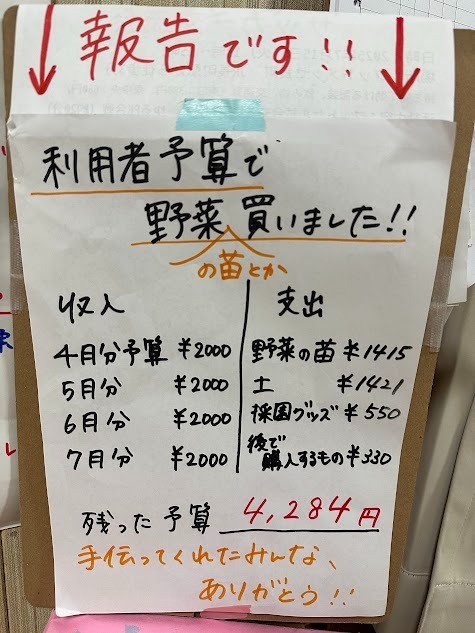 報告です!!
利用者予算で
野菜買いました!!
の苗とか
収入
4月分予算 ¥2000
5月分 ¥2000
6月分 ¥2000
7月分 ¥2000
支出
野菜の苗 ¥1415
土 ¥1421
採園グッズ ¥550
後で
購入するもの ¥330
残った予算 4,284円
手伝ってくれたみんな、
ありがとう!!